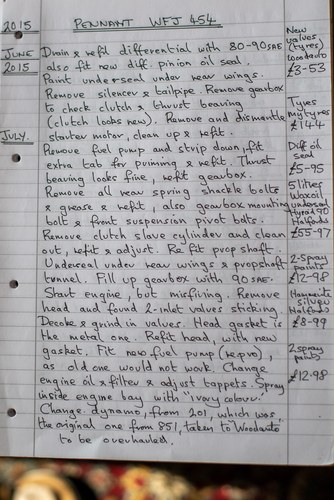 2015 PENNANT WFJ 454
JUNE 2015
Drain & refil differential with 80-90 SAE
also fit new diff. pinion oil seal.
Paint under-seal under wear wings.
Remove silencer & tailpipe. Remove gearbox
to check clutch & thrust bearing
(clutch looks new). Remove and dismantle
starter motor, clean up & refit.
JULY.
Remove fuel pump and strip down, fit
extra tab for priming & refit. Thrust
bearing looks fine, refit gearbox.
Remove all rear spring shackle bolts
& grease & refit, also gearbox mounting
bolt & front suspension pivot bolts.
Remove clutch slave cylinder and clean
out, refit & adjust. Re fit prop shaft.
Underseal under rear wings & propshaft
tunnel. Fill up gearbox with 90 SAE.
Start engine, but misfiring. Remove
head and found 2-inlet valves sticking.
Decoke & grind in valves. Head gasket is
the metal one. Refit head, with new
gasket. Fit new fuel pump (repro),
as old one would not work. Change
engine oil & filter & adjust tappets. Spray
inside engine bay with "ivory colour."
Change dynamo, from 201, which was
the original one from 851, taken to Woodauto
to be overhauled.
New
valves
(tyres)
Woodauto
£3-53
Tyres
mytyres
£144
Diff oil
seal
£5-95
5 litres
Waxoil
underseal
Hycad 90
Halfords
£55-97
2-Spray
paints
£12-98
Hammerite
silver
Halfords
£8-99
2 spray
paints
£12.98